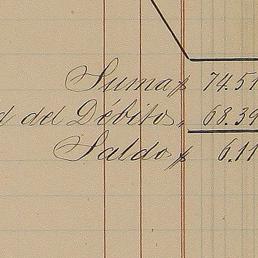 Suma $ 74.51
d del Débito „ 68.39
Saldo $ 6.11